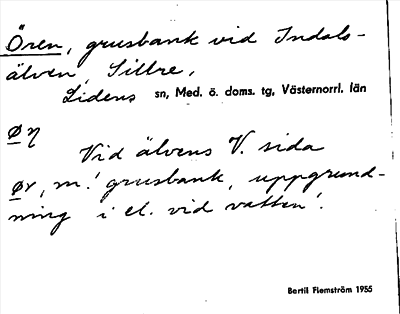 Ören, grusbank vid Indals-
älven, Sillre,
Lidens sn, Med. ö. doms. tg, Västernorrl. län
Øη
Vid älvens V. sida
Ør, m.' grusbank, uppgrund-
ning i el. vid vatten'.
Bertil Flemström 1955